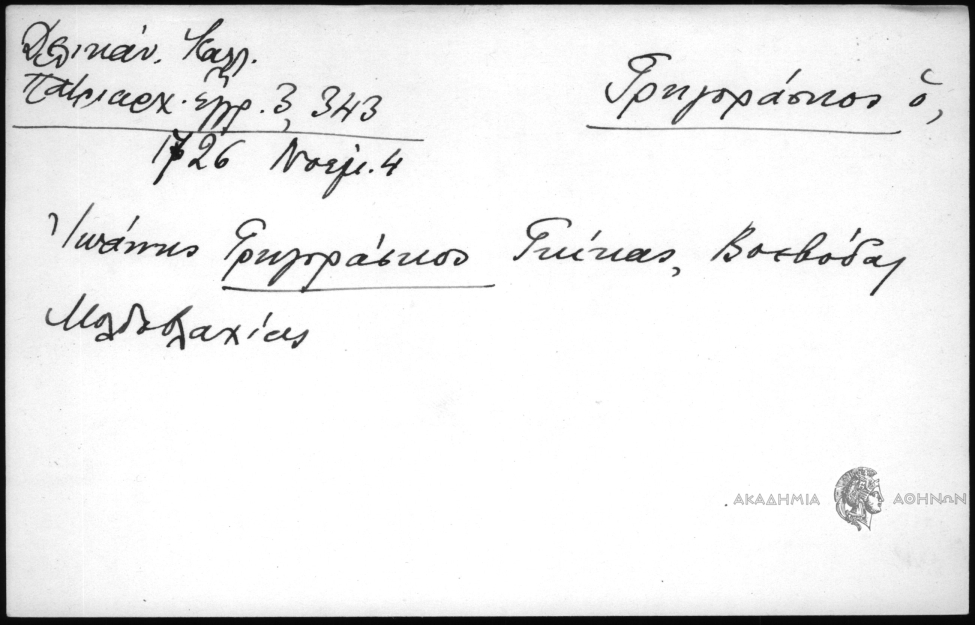 Δελικάν. Καλλ.
Πατριαρχ. έγγρ. 3, 343
1726 Νοεμ. 4
Γρηγοράσκος ὁ,
Ἰωάννης Γρηγοράσκος Γκίκας, Βοεβόδας
Μολδοβλαχίας
ΑΚΑΔΗΜΙΑ ΑΘΗΝΩΝ